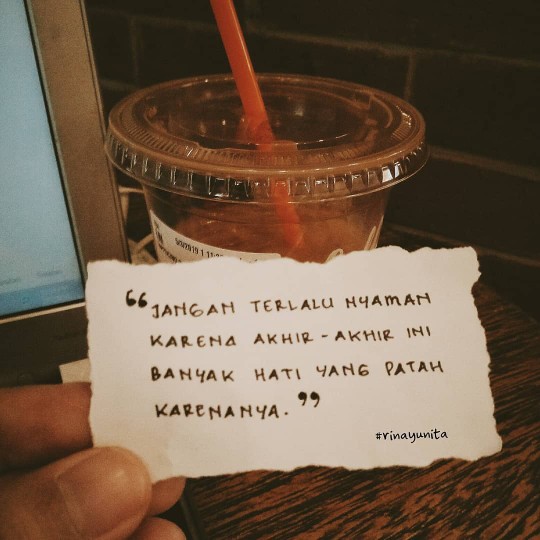 “JANGAN TERLALU NYAMAN
KARENA AKHIR-AKHIR INI
BANYAK HATI YANG PATAH
KARENANYA.”
#rinayunita